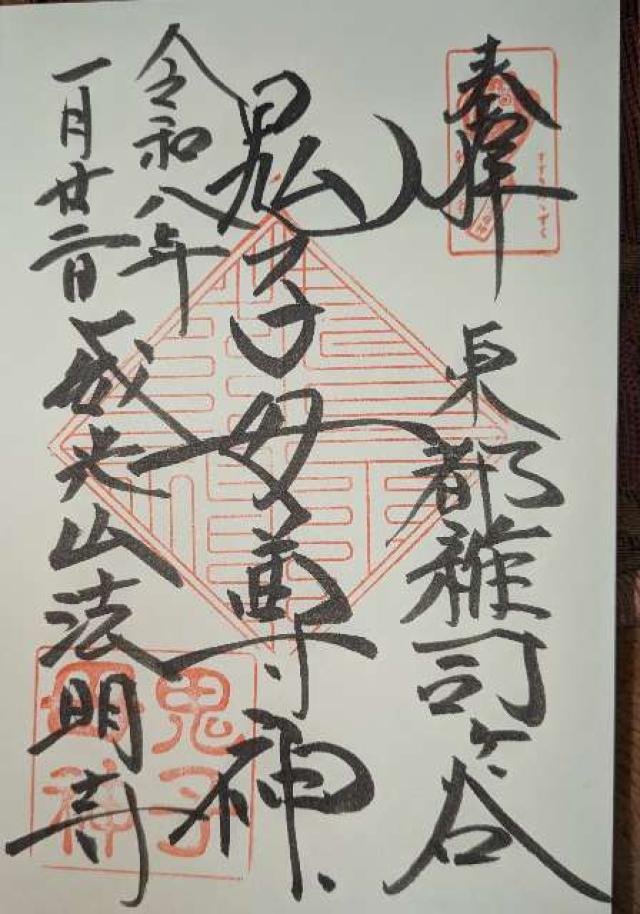 奉拝
東都雜司ヶ谷
鬼子母尊神
令和八年
一月廿二日
威光山法明寺
鬼子
母神